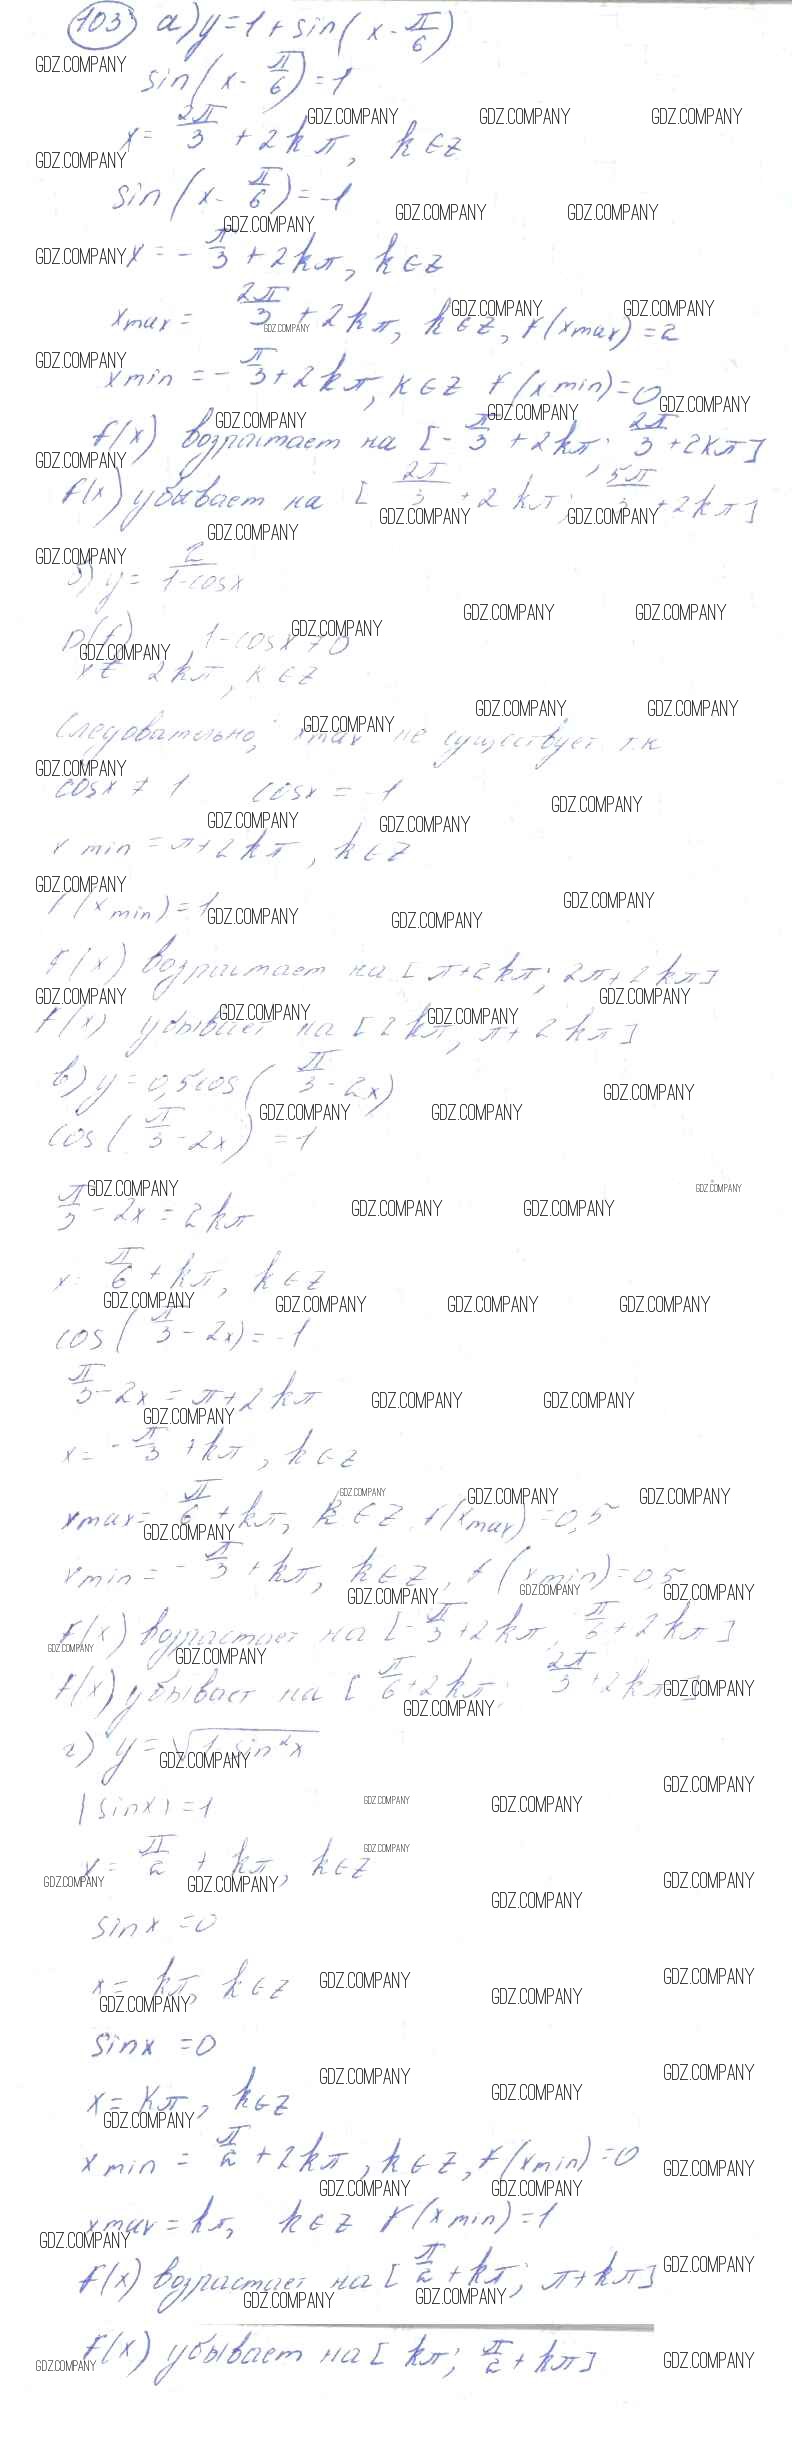 103 а) y = 1 + sin(x - π/6)
sin(x - π/6) = 1
x = 2π/3 + 2kπ, k∈Z
sin(x - π/6) = -1
x = -π/3 + 2kπ, k∈Z
xmax = 2π/3 + 2kπ, k∈Z, f(xmax) = 2
xmin = -π/3 + 2kπ, k∈Z f(xmin) = 0
f(x) возрастает на [-π/3 + 2kπ; 2π/3 + 2kπ]
f(x) убывает на [2π/3 + 2kπ; 5π/3 + 2kπ]
б) y = 2/(1-cosx)
D(f) 1-cosx ≠ 0
x ≠ 2kπ, k∈Z
Следовательно, xmax не существует т.к
cosx ≠ 1 cosx = -1
xmin = π+2kπ, k∈Z
f(xmin) = 1
f(x) возрастает на [π+2kπ; 2π+2kπ]
f(x) убывает на [2kπ, π+2kπ]
в) y = 0,5cos(π/3 - 2x)
cos(π/3 - 2x) = 1
π/3 - 2x = 2kπ
x = π/6 + kπ, k∈Z
cos(π/3 - 2x) = -1
π/3 - 2x = π+2kπ
x = -π/3 + kπ, k∈Z
xmax = π/6 + kπ, k∈Z, f(xmax) = 0,5
xmin = -π/3 + kπ, k∈Z, f(xmin) = 0,5
f(x) возрастает на [-π/3 + 2kπ, π/6 + 2kπ]
f(x) убывает на [π/6 + 2kπ; 2π/3 + 2kπ]
г) y = √(1-sin²x)
|sinx| = 1
x = π/2 + kπ, k∈Z
sinx = 0
x = kπ, k∈Z
sinx = 0
x = kπ, k∈Z
xmin = π/2 + 2kπ, k∈Z, f(xmin) = 0
xmax = kπ, k∈Z f(xmin) = 1
f(x) возрастает на [π/2 + kπ; π+kπ]
f(x) убывает на [kπ; π/2 + kπ]
GDZ.COMPANY